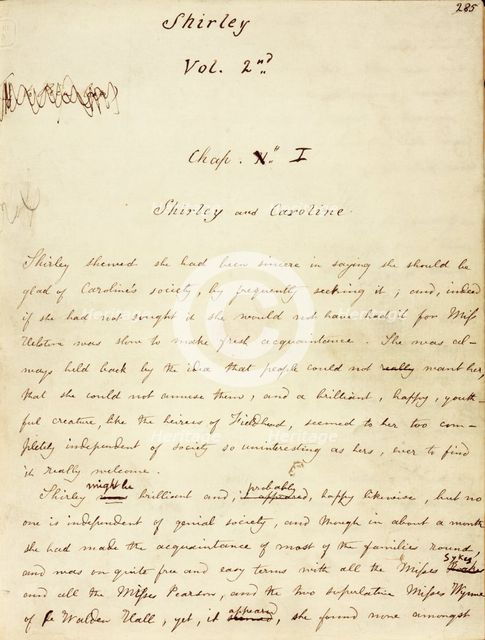 285
Shirley
Vol. 2nd
Chap. I
Shirley and Caroline.
Shirley shewed she had been sincere in saying she should be
glad of Caroline's society, by frequently seeking it; and, indeed
if she had not sought it she would not have had it for Miss
Helstone was slow to make fresh acquaintance. She was al-
ways held back by the idea that people could not really want her,
that she could not amuse them, and a brilliant, happy, youth-
ful creature, like the heiress of Fieldhead, seemed to her too com-
pletely independent of society so uninteresting as hers, ever to find
it really welcome.
Shirley might be brilliant and, probably, happy likewise, but no
one is independent of genial society, and though in about a month
she had made the acquaintance of most of the families round
and was on quite free and easy terms with all the Misses Sykes,
and all the Misses Pearson, and the two superlative Misses Wynne
of Walden Hall, yet, it appeared, she found none amongst
Heritage
Heritage
Heritage
Heritage